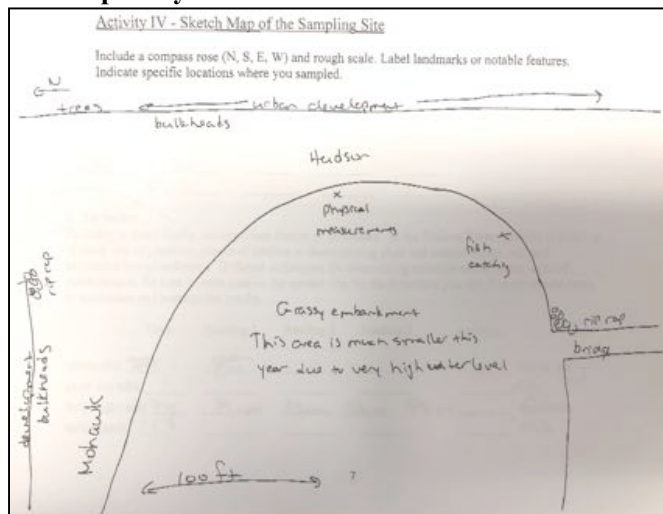 Activity IV - Sketch Map of the Sampling Site
Include a compass rose (N, S, E, W) and rough scale. Label landmarks or notable features.
Indicate specific locations where you sampled.
N
trees
urban development
bulkheads
Hudson
x
physical
measurements
x
fish
catching
rip rap
development
bulkheads
Grassy embankment
This area is much smaller this
year due to very high water level
rip rap
bridge
Mohawk
100 ft
7